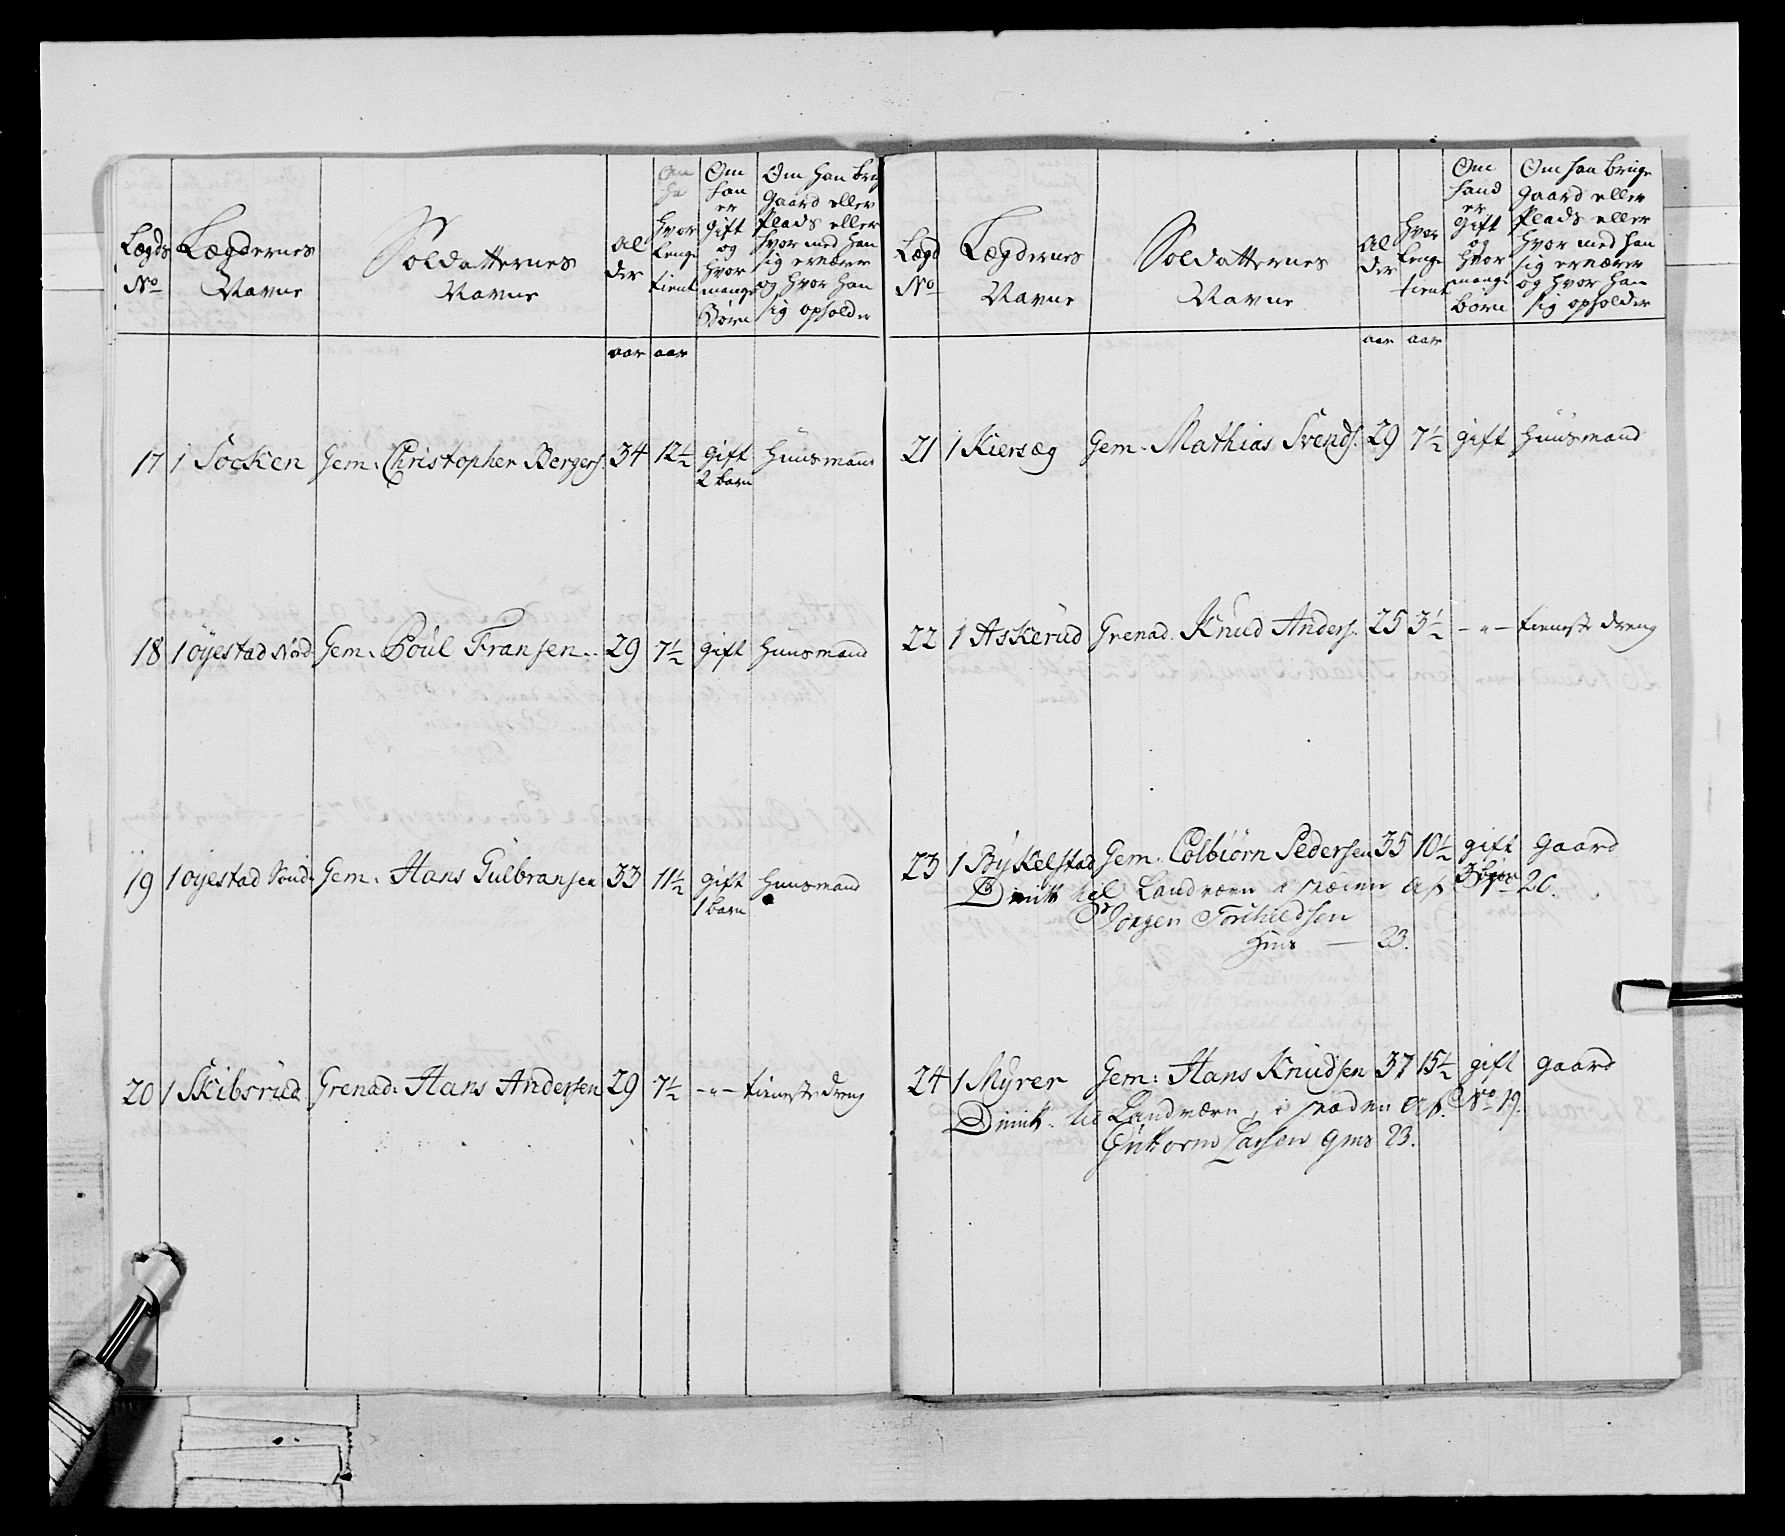 Lægds No
Lægdernes Navne
Soldatternes Navne
Al der
hvor lenge tient
Om han er gift og hvor mange Born
Om han brug Gaard eller Plads eller hvor med han sig ernærer og hvor han sig opholder
aar aar
17 1 Socken Gem. Christopher Bergers. 34 12½ gift Huusmand
2 barn
18 1 öyestad Nörd. Gem. Poul Fransen 29 7½ gift Huusmand
19 1 öyestad Sönd. Gem. Hans Gulbransen 33 11½ gift Huusmand
1 barn
20 1 Skibsrud Grenad. Hans Andersen 29 7½ -"- tieneste dreng
Lægd No
Lægdernes Navne
Soldatternes Navne
Al der
hvor lenge tient
Om hand er gift og hvor mange born
Om han bruge Gaard eller Plads eller hvor med han sig ernærer og hvor han sig opholder
aar aar
21 1 Kiersæg Gem. Mathias Svends. 29 7½ gift huusmand
22 1 Askerud Grenad. Knud Anders. 25 3½ -"- tieneste dreng
23 1 Bykelstad Gem. Colbiörn Pedersen 35 10½ gift gaard
Dimitt. til Landværn i 20.
Jörgen
23.
24 1 Myrer Gem. Hans Knudsen 37 15½ gift gaard
Dimitt. til Landværn, i af No 19.
Guttorm Larsen 23.